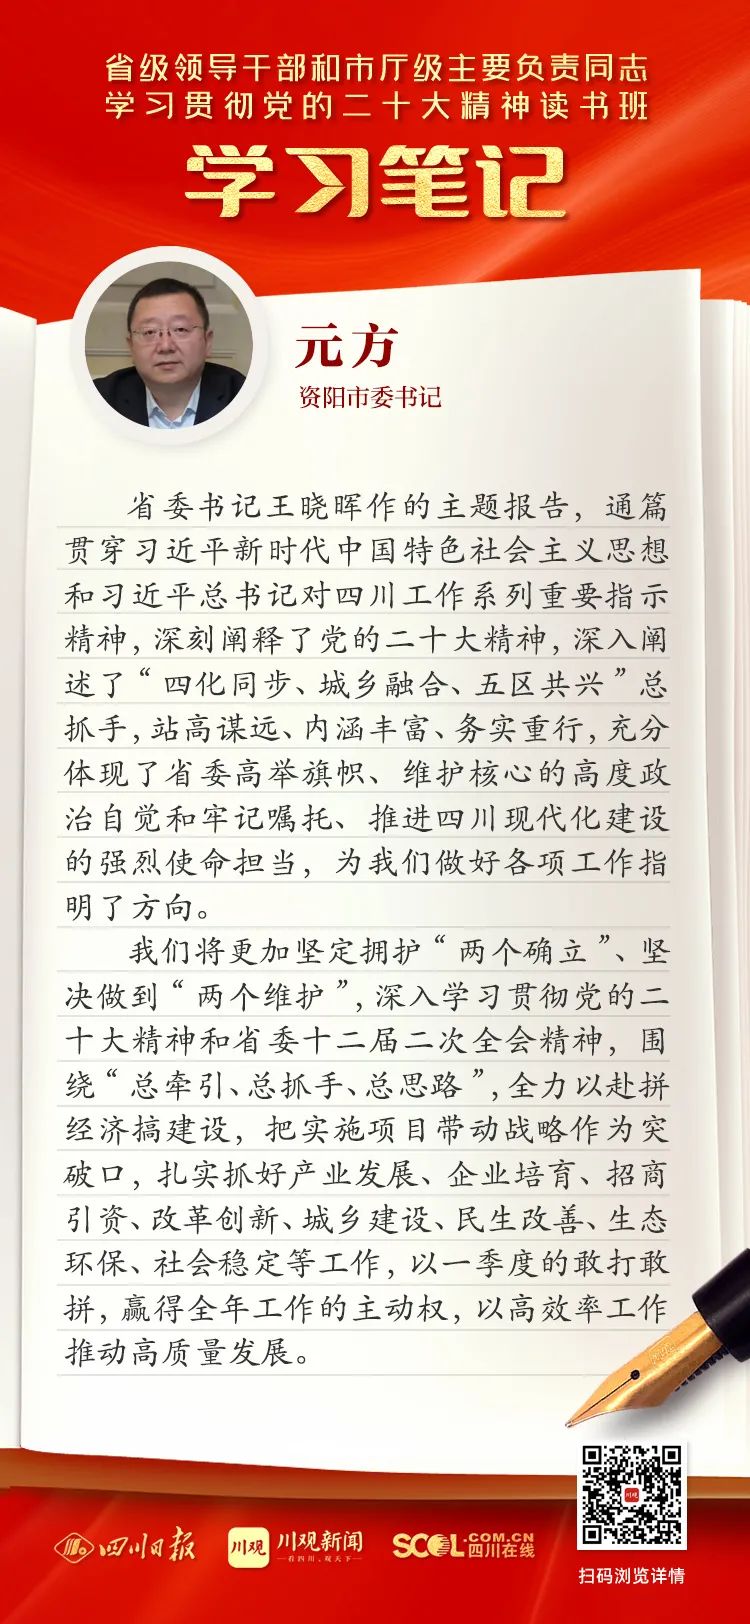 省级领导干部和市厅级主要负责同志
学习贯彻党的二十大精神读书班
学习笔记
元方
资阳市委书记
省委书记王晓晖作的主题报告，通篇
贯穿习近平新时代中国特色社会主义思想
和习近平总书记对四川工作系列重要指示
精神，深刻阐释了党的二十大精神，深入阐
述了“四化同步、城乡融合、五区共兴”总
抓手，站高谋远、内涵丰富、务实重行，充分
体现了省委高举旗帜、维护核心的高度政
治自觉和牢记嘱托、推进四川现代化建设
的强烈使命担当，为我们做好各项工作指
明了方向。
我们将更加坚定拥护“两个确立”、坚
决做到“两个维护”，深入学习贯彻党的二
十大精神和省委十二届二次全会精神，围
绕“总牵引、总抓手、总思路”，全力以赴拼
经济搞建设，把实施项目带动战略作为突
破口，扎实抓好产业发展、企业培育、招商
引资、改革创新、城乡建设、民生改善、生态
环保、社会稳定等工作，以一季度的敢打敢
拼，赢得全年工作的主动权，以高效率工作
推动高质量发展。
川观
四川日报
川观
川观新闻
看四川、观天下
SCOL.COM.CN
四川在线
扫码浏览详情